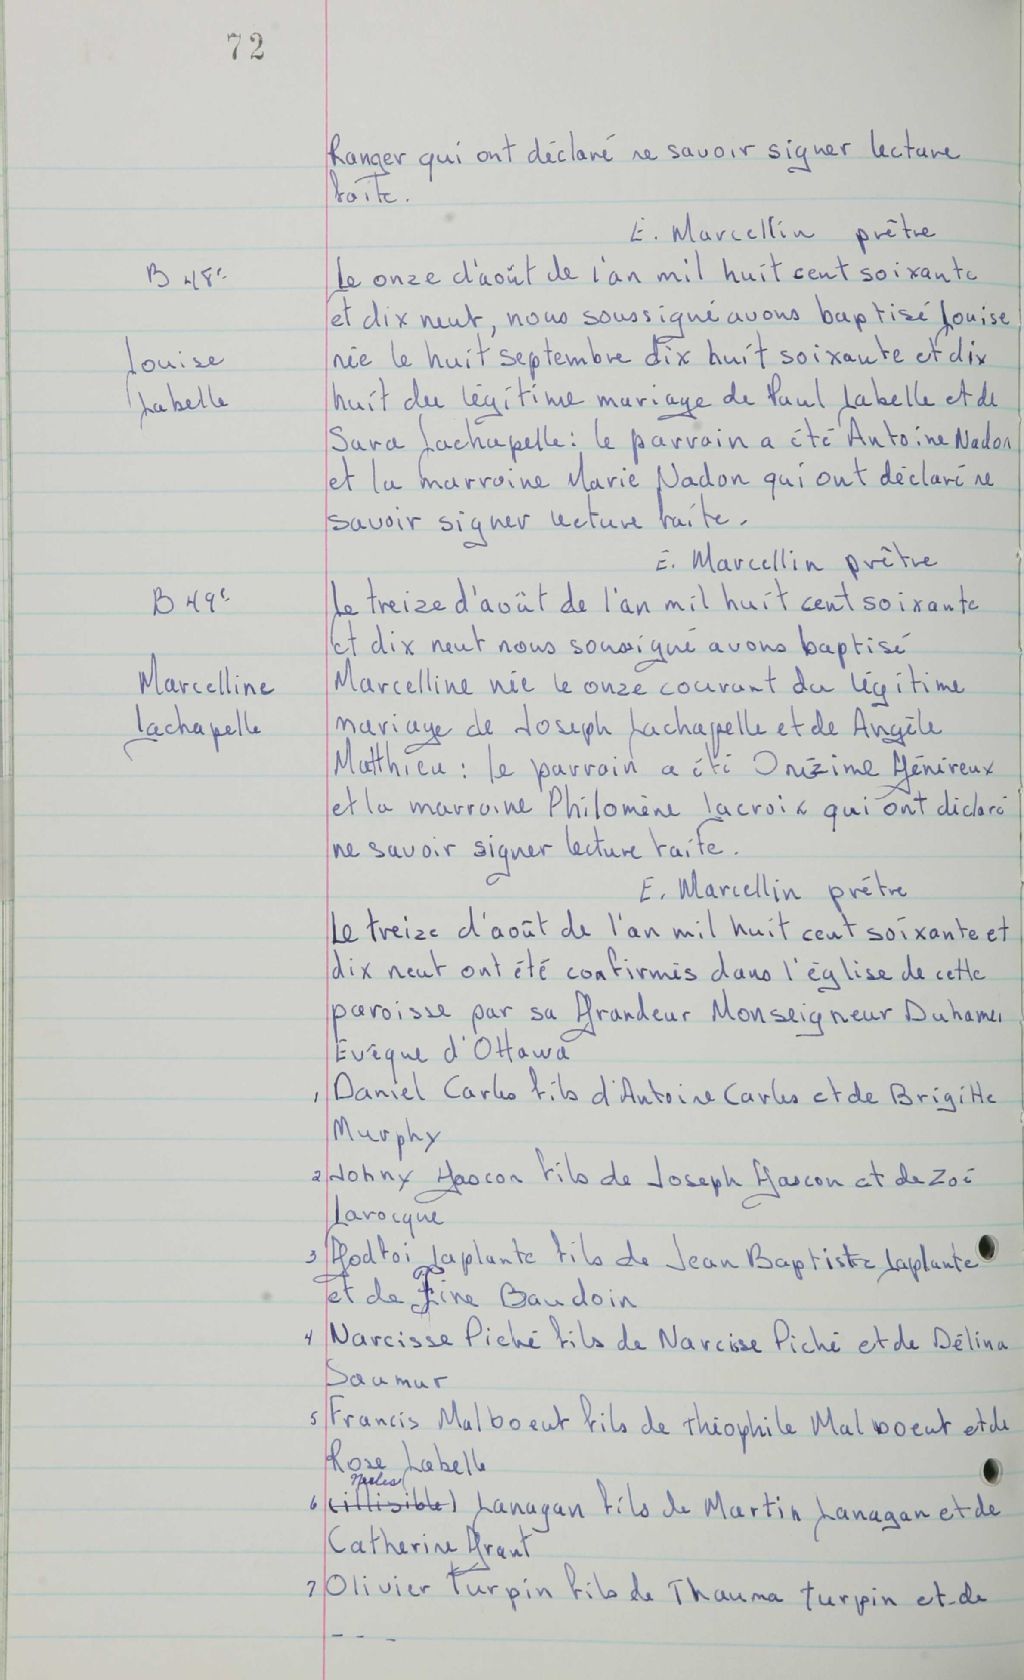 72
Ranger qui ont déclaré ne savoir signer lecture
faite.
E. Marcellin prêtre
B 48e
Le onze d'août de l'an mil huit cent soixante
et dix neuf, nous soussigné avons baptisé Louise
Louise
née le huit septembre dix huit soixante et dix
Labelle
huit du légitime mariage de Paul Labelle et de
Sara Lachapelle: le parrain a été Antoine Nadon
et la marraine Marie Nadon qui ont déclaré ne
savoir signer lecture faite.
E. Marcellin prêtre
B 49e
Le treize d'août de l'an mil huit cent soixante
et dix neuf nous soussigné avons baptisé
Marcelline
Marcelline née le onze courant du légitime
Lachapelle
mariage de Joseph Lachapelle et de Angèle
Matthieu: le parrain a été Onézime Généreux
et la marraine Philomène Lacroix qui ont déclaré
ne savoir signer lecture faite.
E. Marcellin prêtre
Le treize d'août de l'an mil huit cent soixante et
dix neuf ont été confirmés dans l'église de cette
paroisse par sa Grandeur Monseigneur Duhamel
Evêque d'Ottawa
1 Daniel Carles fils d'Antoine Carles et de Brigitte
Murphy
2 Johny Gascon fils de Joseph Gascon et de Zoé
Larocque
3 Godfroi Laplante fils de Jean Baptiste Laplante
et de Fine Baudoin
4 Narcisse Piché fils de Narcisse Piché et de Délina
Saumur
5 Francis Malboeuf fils de Théophile Malboeuf et de
Rose Labelle
6 (illisible) Lanagan fils de Martin Lanagan et de
Catherine Grant
7 Olivier Turpin fils de Thauma Turpin et de
- - -